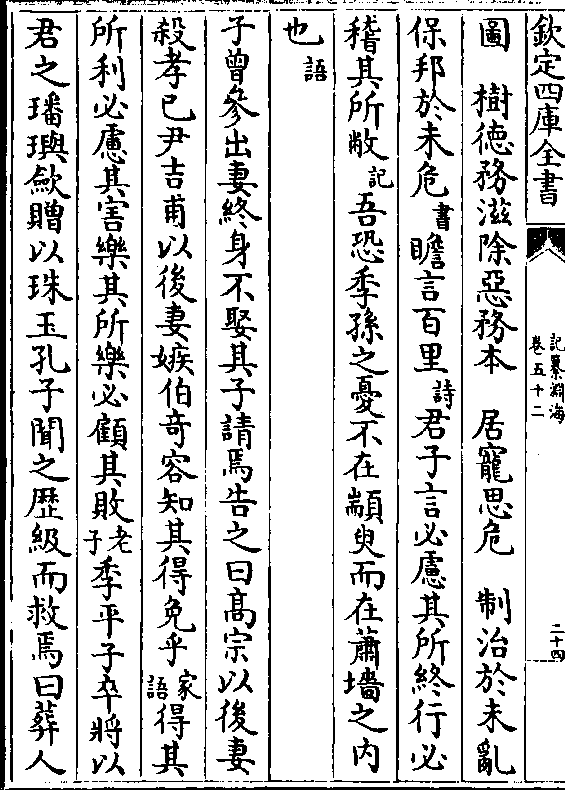 欽定四庫全書
記纂淵海
卷五十二
二十四
圖　樹德務滋除惡務本　居寵思危　制治於未亂
保邦於未危書瞻言百里詩君子言必慮其所終行必
稽其所敝記吾恐季孫之憂不在顓臾而在蕭墻之內
也語
子曾參出妻終身不娶其子請焉告之曰髙宗以後妻
殺孝已尹吉甫以後妻嫉伯竒容知其得免乎家語得其
所利必慮其害樂其所樂必顧其敗老子季平子卒將以
君之璠璵斂贈以珠玉孔子聞之歴級而救焉曰葬人